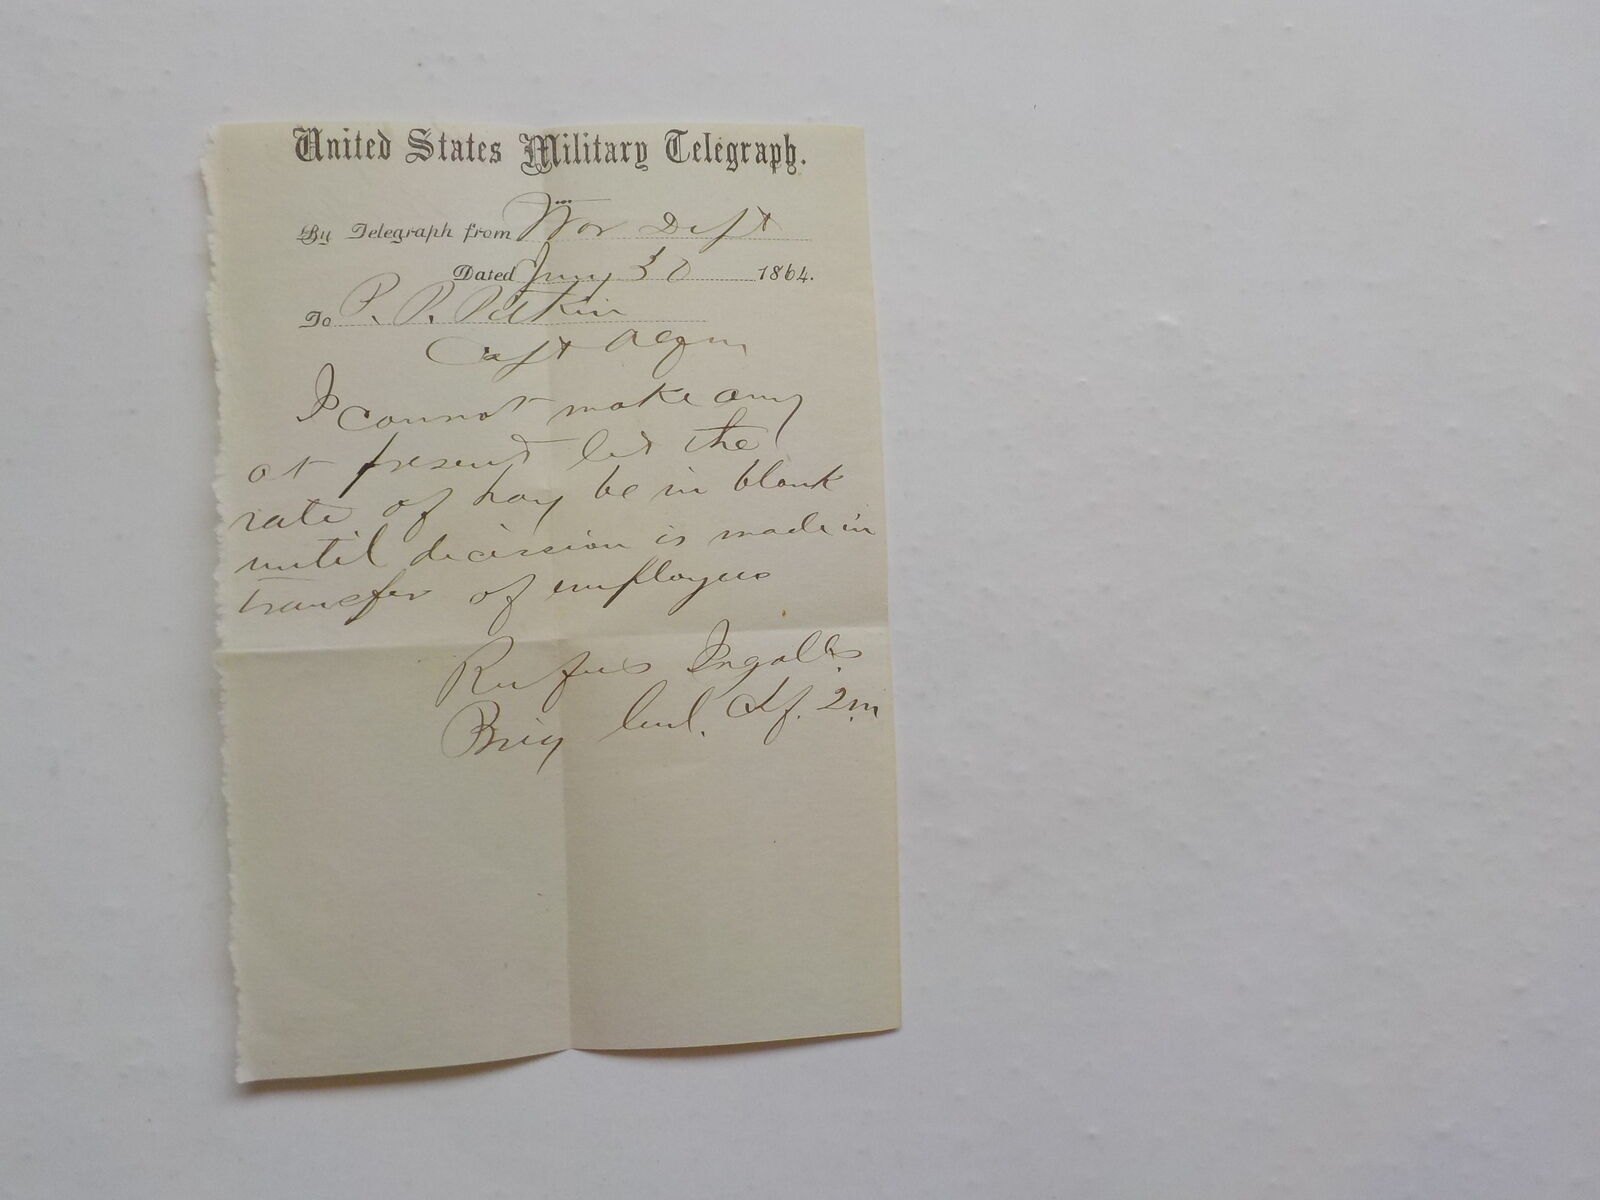 United States Military Telegraph.
By Telegraph from War Dept
Dated Jany 30 1864.
To P. P. Pitkin
Capt AQm
I cannot make any
at present let the
rate of hay be in blank
until decission is made in
transfer of employees
Rufus Ingalls
Brig Genl. Cf. 2m